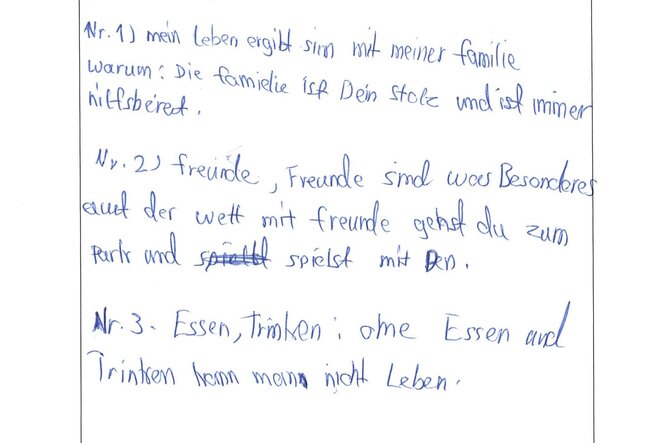 Nr. 1) mein Leben ergibt sinn mit meiner familie
warum: Die famielie ist Dein Stolz und ist immer
hilfsbereit.
Nr. 2) freunde, Freunde sind was Besonderes
auf der welt mit freunde gehst du zum
Park und spielst mit Den.
Nr. 3. Essen, Trinken: ohne Essen und
Trinken kann man nicht Leben.